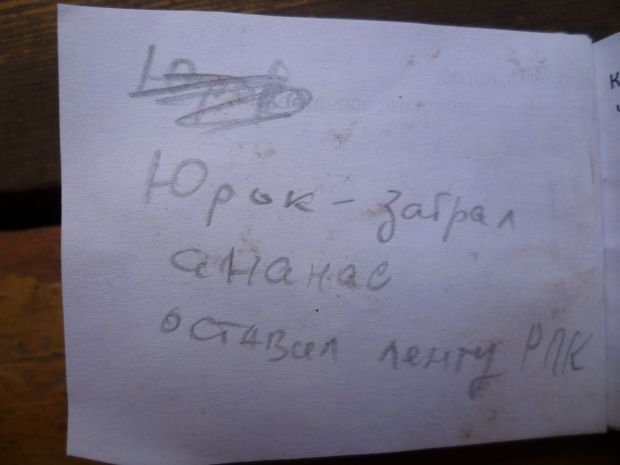 Юрок - забрал
ананас
оставил ленту РПК